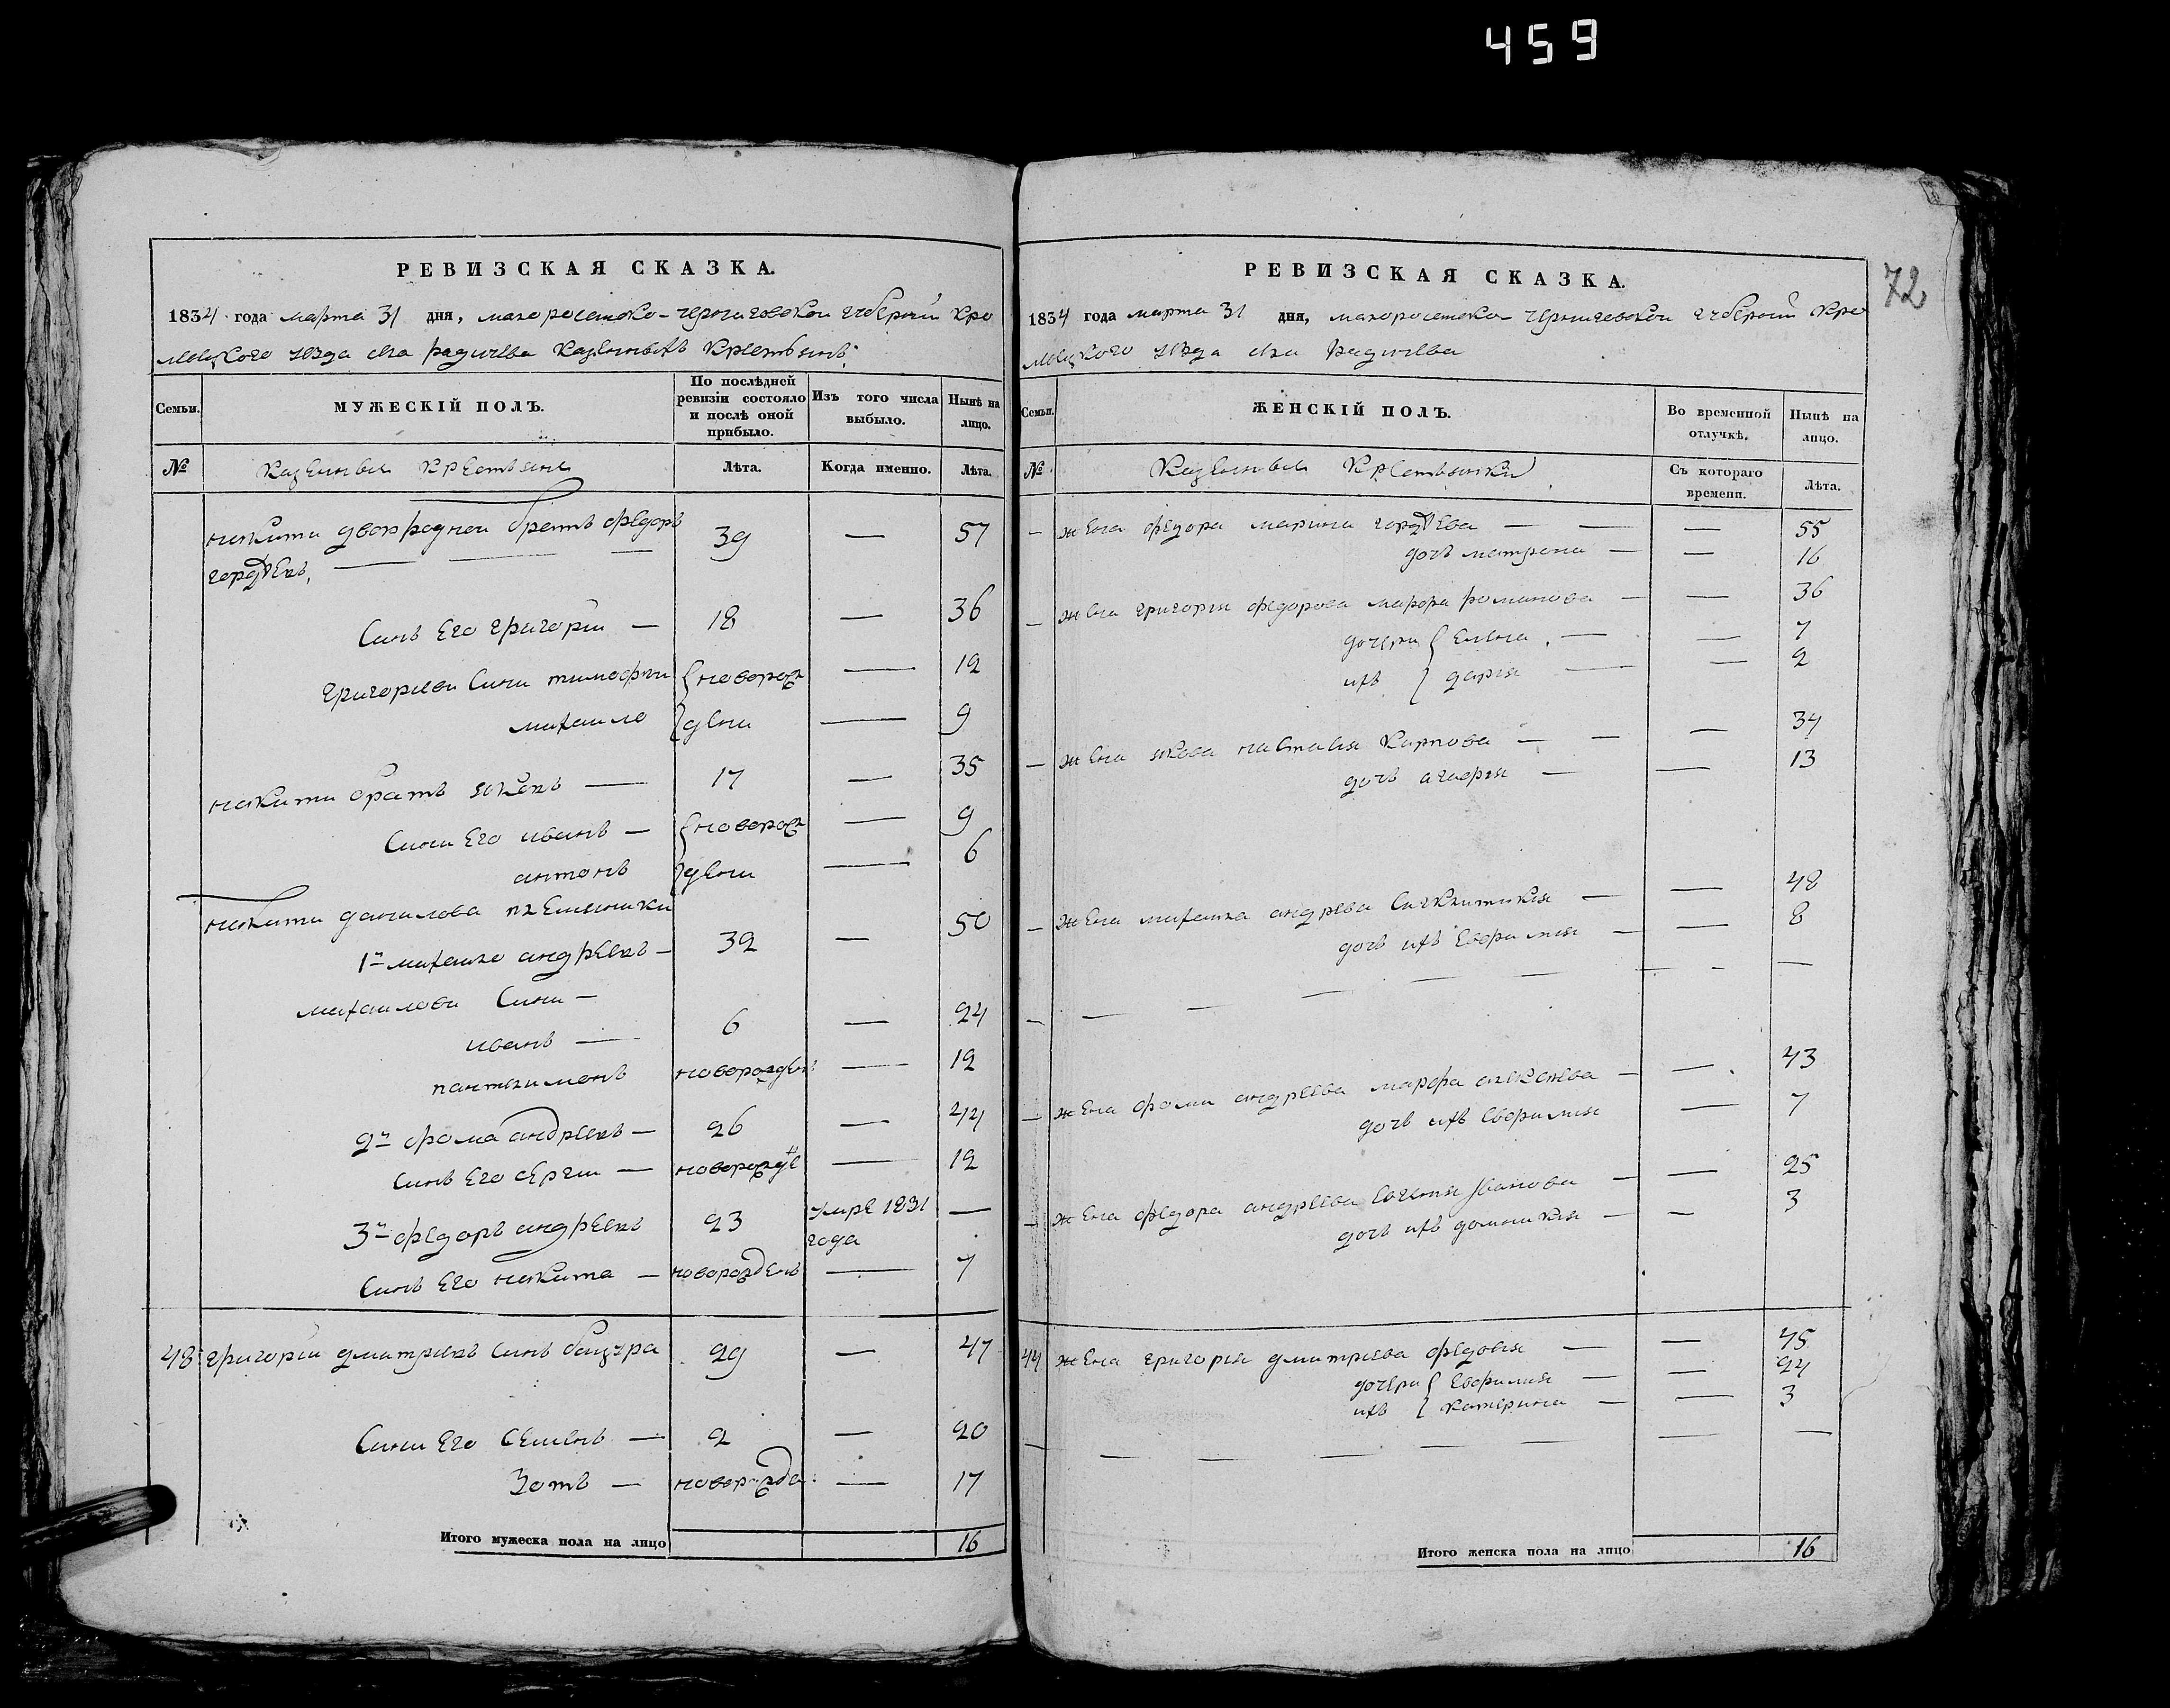 459
72
РЕВИЗСКАЯ СКАЗКА.
1834 года марта 31 дня, малоросииско-черниговской губернии Кро
левецкого уезда села радичева Казенныхъ Крестьянъ
Семьи. МУЖЕСКІЙ ПОЛЪ. По послѣдней ревизіи состояло и послѣ оной прибыло. Изъ того числа выбыло. Нынѣ на лицо.
№ Казенные Крестьяне Лѣта. Когда именно. Лѣта.
никити двоюродней братъ федоръ
гордѣевъ, — 39 — 57
Синъ Его григорий — 18 — 36
григориеви Сини тимофеи новорож — 12
михаило дени — 9
никити братъ яковъ — 17 — 35
Сини Его иванъ — новорож — 9
антонъ дени — 6
никити данилова племянники
1й михаило андреевъ — 32 — 50
михаилови Сини —
иванъ — 6 — 24
пантелимонъ новорожден — 12
2й фома андреевъ — 26 — 44
Синъ Его сергии — новорожде — 12
3й федоръ андреевъ 23 умре 1831 года —
Синъ Его никита — новорожденъ — 7
48 григории дмитриевъ Синъ бацура 29 — 47
Сини Его Семенъ — 2 — 20
Зотъ — новорожде: — 17
Итого мужеска пола на лицо 16
РЕВИЗСКАЯ СКАЗКА.
1834 года марта 31 дня, малоросииско-черниговской губернии Кро
левецкого уезда села радичева
Семьи. ЖЕНСКІЙ ПОЛЪ. Во временной отлучкѣ. Нынѣ на лицо.
№ Казенные Крестьянки Съ котораго времени. Лѣта.
— жена федора марина гордѣева — — — 55
дочь матрона — — 16
— жена григория федорова марфа романова — — 36
дочери Елена — — 7
ихъ дария — — 2
— жена якова наталия Карпова — — — 34
дочь агафия — — 13
— жена михаила андреева — — 48
дочь ихъ Евфимия — — 8
— — — — — — — —
— жена фоми андреева марфа алексеева — — 43
дочь ихъ Евфимия — 7
— жена федора андреева Евгения Иванова — — 25
дочь ихъ домникия — — 3
44 жена григория дмитриева федосия — — 45
дочери Евфимия — — 24
ихъ Катерина — — 3
— — — — — — — —
Итого женска пола на лицо 16